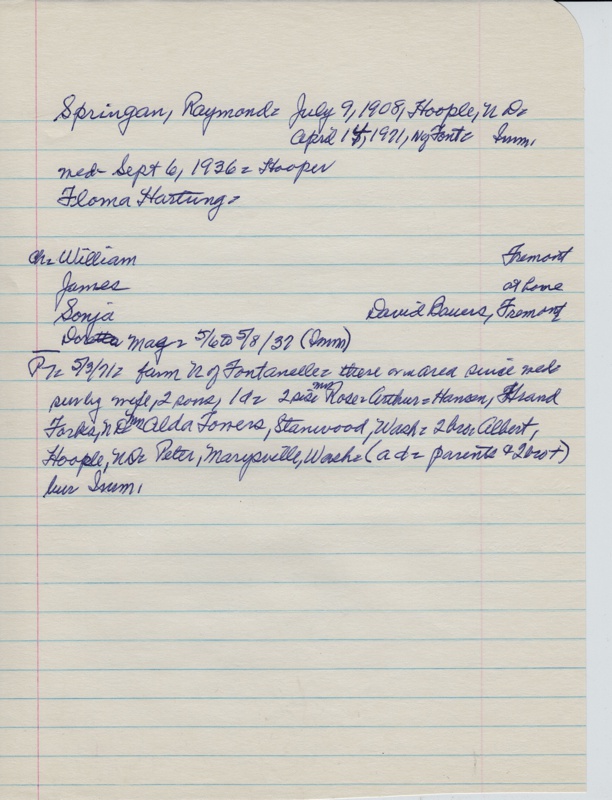 Springan, Raymond= July 9, 1908, Hoople, N D=
April 14, 1971, N of Font= Imm,
med- Sept 6, 1936 = Hooper
Floma Hartung=
ch= William Fremont
James at home
Sonja David Bauers, Fremont
Mag = 5/6 to 5/8/37 (Imm)
P= 5/3/71= farm N of Fontanelle= there or area since med
sur by wife, 2 sons, 1 d= 2 sis= mrs Rose= Arthur= Hansen, Grand
Forks, ND= mrs Alda Towers, Stanwood, Wash= 2 bro= Albert,
Hoople, ND= Peter, Marysville, Wash= (a d= parents & 2 bro+)
bur Imm,